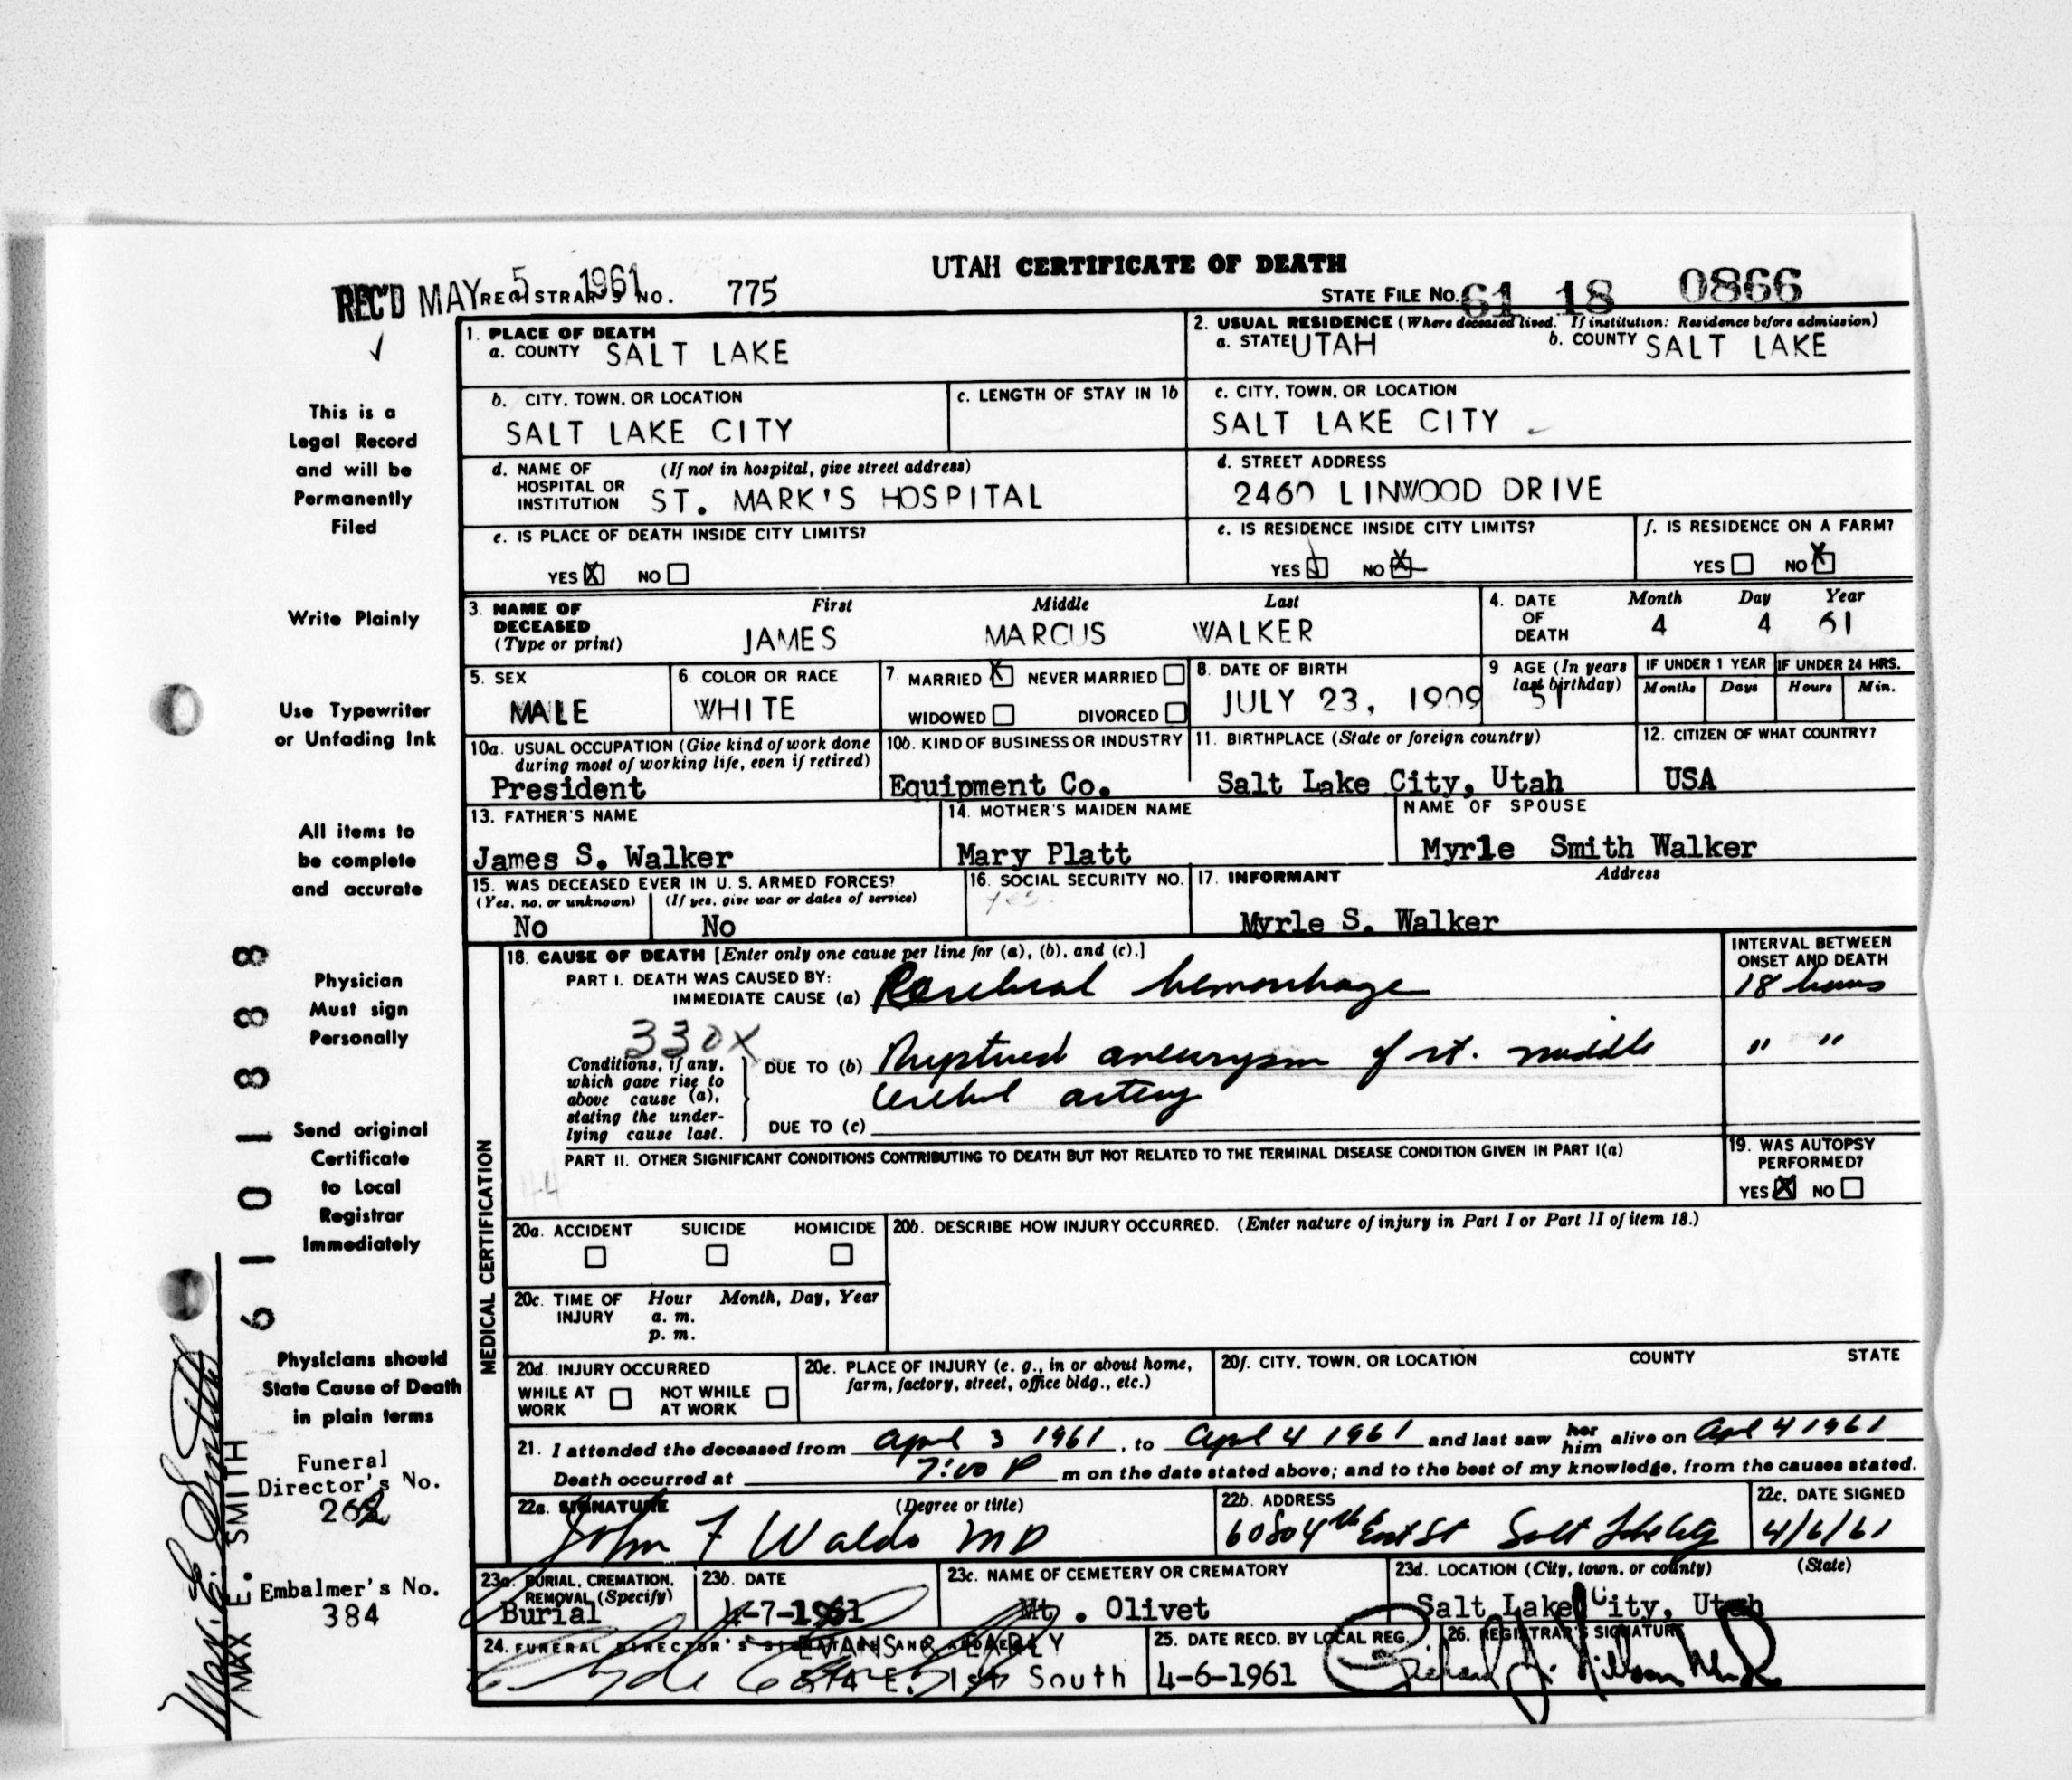 UTAH CERTIFICATE OF DEATH
REC'D MAY 5 1961 REGISTRAR'S NO. 775
STATE FILE NO. 61 18 0866
1. PLACE OF DEATH
a. COUNTY SALT LAKE
2. USUAL RESIDENCE (Where deceased lived. If institution: Residence before admission)
a. STATE UTAH b. COUNTY SALT LAKE
b. CITY, TOWN, OR LOCATION
SALT LAKE CITY
c. LENGTH OF STAY IN 1b
c. CITY, TOWN, OR LOCATION
SALT LAKE CITY
d. NAME OF HOSPITAL OR INSTITUTION (If not in hospital, give street address)
ST. MARK'S HOSPITAL
d. STREET ADDRESS
2460 LINWOOD DRIVE
e. IS PLACE OF DEATH INSIDE CITY LIMITS?
YES X NO
e. IS RESIDENCE INSIDE CITY LIMITS?
YES NO X
f. IS RESIDENCE ON A FARM?
YES NO X
3. NAME OF DECEASED (Type or print)
First Middle Last
JAMES MARCUS WALKER
4. DATE OF DEATH
Month Day Year
4 4 61
5. SEX
MALE
6. COLOR OR RACE
WHITE
7. MARRIED X NEVER MARRIED
WIDOWED DIVORCED
8. DATE OF BIRTH
JULY 23, 1909
9. AGE (In years last birthday)
51
IF UNDER 1 YEAR IF UNDER 24 HRS.
Months Days Hours Min.
10a. USUAL OCCUPATION (Give kind of work done during most of working life, even if retired)
President
10b. KIND OF BUSINESS OR INDUSTRY
Equipment Co.
11. BIRTHPLACE (State or foreign country)
Salt Lake City, Utah
12. CITIZEN OF WHAT COUNTRY?
USA
13. FATHER'S NAME
James S. Walker
14. MOTHER'S MAIDEN NAME
Mary Platt
NAME OF SPOUSE
Myrle Smith Walker
15. WAS DECEASED EVER IN U. S. ARMED FORCES?
(Yes, no, or unknown) (If yes, give war or dates of service)
No No
16. SOCIAL SECURITY NO.
yes
17. INFORMANT Address
Myrle S. Walker
MEDICAL CERTIFICATION
18. CAUSE OF DEATH [Enter only one cause per line for (a), (b), and (c).]
INTERVAL BETWEEN ONSET AND DEATH
PART I. DEATH WAS CAUSED BY:
IMMEDIATE CAUSE (a) Cerebral hemorrhage 18 hours
330X
Conditions, if any, which gave rise to above cause (a), stating the underlying cause last.
DUE TO (b) Ruptured aneurysm of rt. middle " "
cerebral artery
DUE TO (c)
PART II. OTHER SIGNIFICANT CONDITIONS CONTRIBUTING TO DEATH BUT NOT RELATED TO THE TERMINAL DISEASE CONDITION GIVEN IN PART I(a)
44
19. WAS AUTOPSY PERFORMED?
YES X NO
20a. ACCIDENT SUICIDE HOMICIDE
20b. DESCRIBE HOW INJURY OCCURRED. (Enter nature of injury in Part I or Part II of item 18.)
20c. TIME OF INJURY Hour Month, Day, Year
a. m.
p. m.
20d. INJURY OCCURRED
WHILE AT WORK NOT WHILE AT WORK
20e. PLACE OF INJURY (e. g., in or about home, farm, factory, street, office bldg., etc.)
20f. CITY, TOWN, OR LOCATION COUNTY STATE
21. I attended the deceased from April 3 1961, to April 4 1961 and last saw her him alive on April 4 1961
Death occurred at 7:00 P m on the date stated above; and to the best of my knowledge, from the causes stated.
22a. SIGNATURE (Degree or title)
John F Waldo MD
22b. ADDRESS
22c. DATE SIGNED
4/6/61
23a. BURIAL, CREMATION, REMOVAL (Specify)
Burial
23b. DATE
4-7-1961
23c. NAME OF CEMETERY OR CREMATORY
Mt. Olivet
23d. LOCATION (City, town, or county) (State)
Salt Lake City, Utah
24. FUNERAL DIRECTOR'S SIGNATURE AND ADDRESS
EVANS & EARLY
574 E. 1st South
25. DATE RECD. BY LOCAL REG.
4-6-1961
26. REGISTRAR'S SIGNATURE
This is a
Legal Record
and will be
Permanently
Filed
Write Plainly
Use Typewriter
or Unfading Ink
All items to
be complete
and accurate
Physician
Must sign
Personally
Send original
Certificate
to Local
Registrar
Immediately
Physicians should
State Cause of Death
in plain terms
Funeral
Director's No.
Embalmer's No.
384
Max E. Smith
MAX E. SMITH
61018888